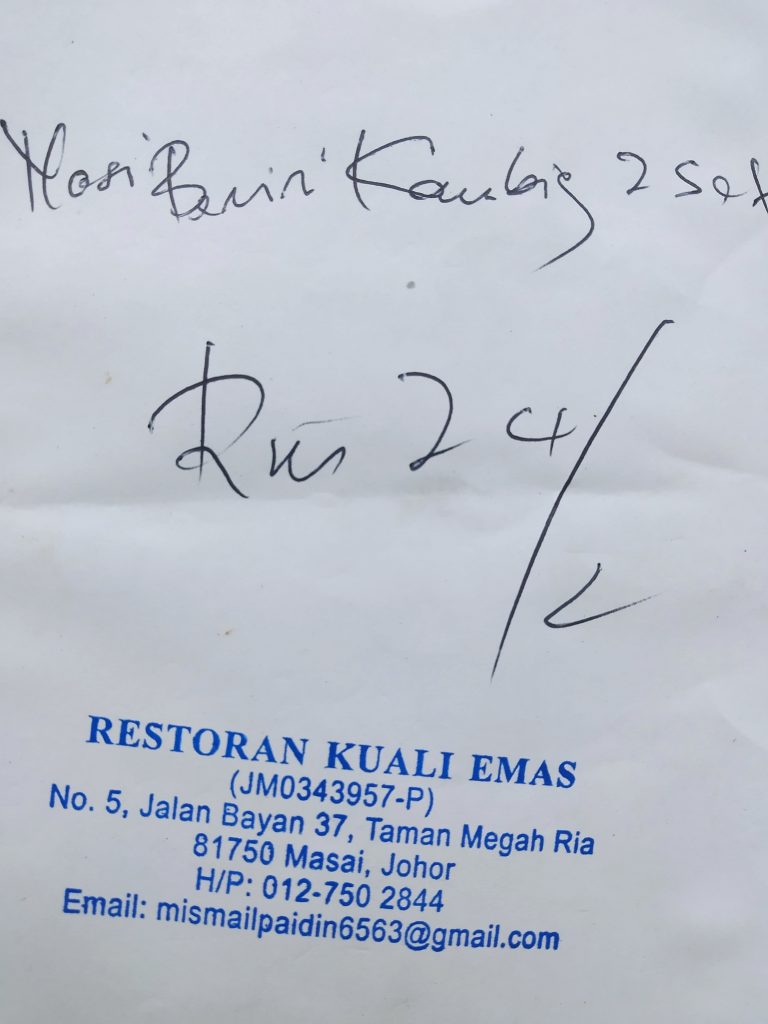 Nasi Beriri Kambig 2 Set
Rm 24/
RESTORAN KUALI EMAS
(JM0343957-P)
No. 5, Jalan Bayan 37, Taman Megah Ria
81750 Masai, Johor
H/P: 012-750 2844
Email: mismailpaidin6563@gmail.com